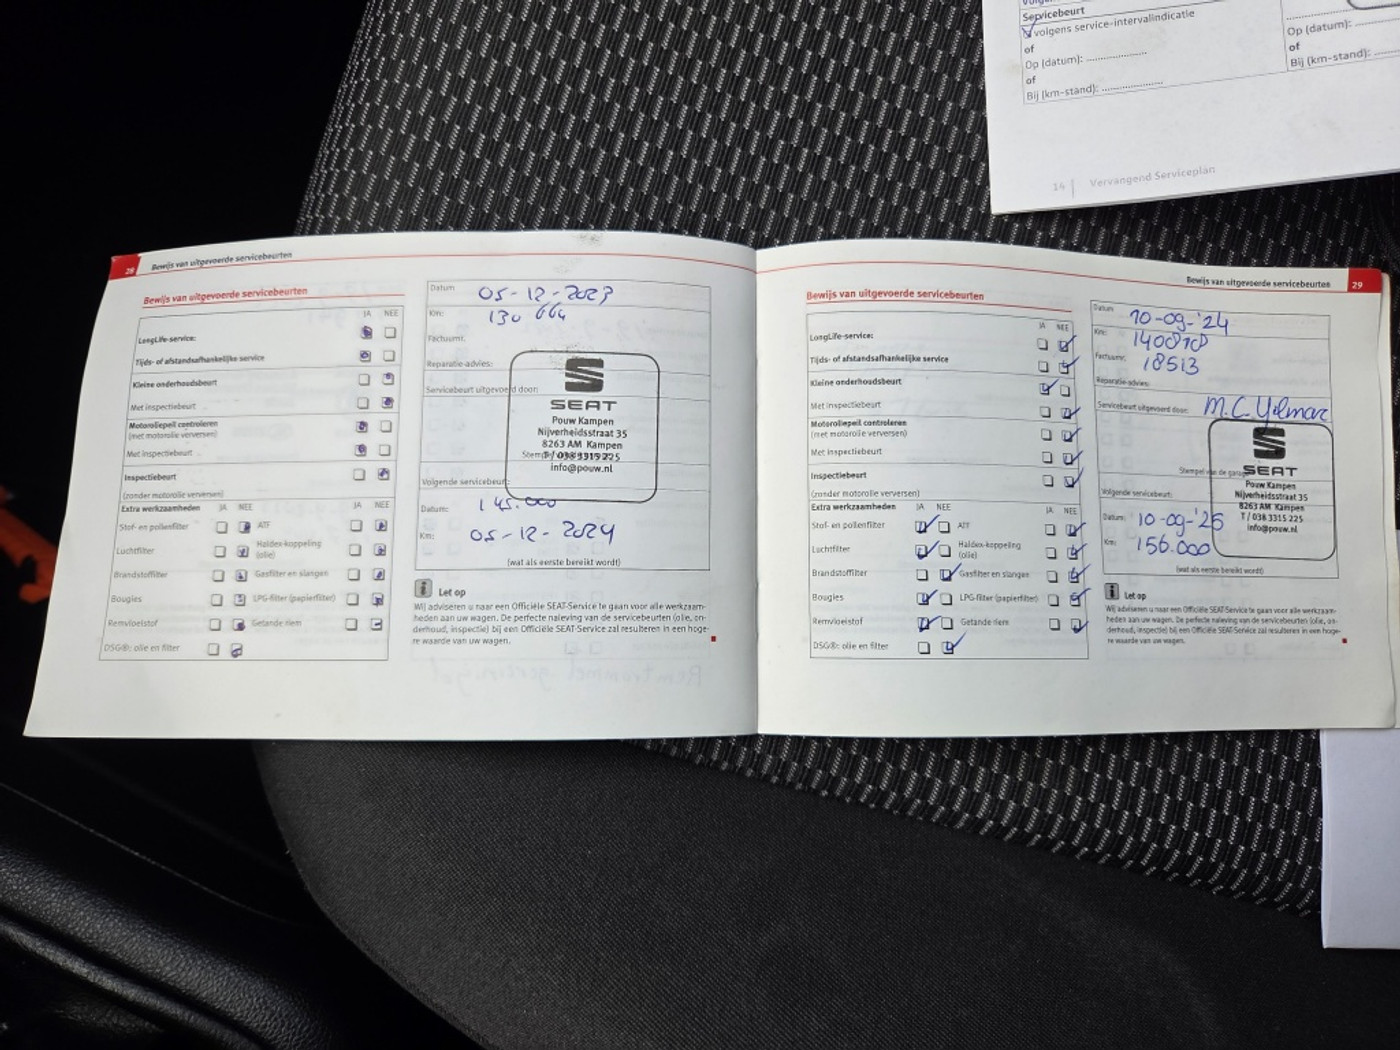 Servicebeurt
volgens service-intervalindicatie
of
Op (datum):
of
Bij (km-stand):
Op (datum):
of
Bij (km-stand):
14 Vervangend Serviceplan
28 Bewijs van uitgevoerde servicebeurten
Bewijs van uitgevoerde servicebeurten
JA NEE
LongLife-service:
Tijds- of afstandsafhankelijke service
Kleine onderhoudsbeurt
Met inspectiebeurt
Motoroliepeil controleren
(met motorolie verversen)
Met inspectiebeurt
Inspectiebeurt
(zonder motorolie verversen)
Extra werkzaamheden JA NEE JA NEE
Stof- en pollenfilter ATF
Luchtfilter Haldex-koppeling
(olie)
Brandstoffilter Gasfilter en slangen
Bougies LPG-filter (papierfilter)
Remvloeistof Getande riem
DSG®: olie en filter
Datum 05-12-2023
Km: 130 664
Factuurnr.
Reparatie-advies:
Servicebeurt uitgevoerd door:
SEAT
Pouw Kampen
Nijverheidsstraat 35
8263 AM Kampen
T / 038 3315 225
info@pouw.nl
Volgende servicebeurt:
Datum: 145.000
Km: 05-12-2024
(wat als eerste bereikt wordt)
i Let op
Wij adviseren u naar een Officiële SEAT-Service te gaan voor alle werkzaam-
heden aan uw wagen. De perfecte naleving van de servicebeurten (olie, on-
derhoud, inspectie) bij een Officiële SEAT-Service zal resulteren in een hoge-
re waarde van uw wagen.
Bewijs van uitgevoerde servicebeurten 29
Bewijs van uitgevoerde servicebeurten
JA NEE
LongLife-service:
Tijds- of afstandsafhankelijke service
Kleine onderhoudsbeurt
Met inspectiebeurt
Motoroliepeil controleren
(met motorolie verversen)
Met inspectiebeurt
Inspectiebeurt
(zonder motorolie verversen)
Extra werkzaamheden JA NEE JA NEE
Stof- en pollenfilter ATF
Luchtfilter Haldex-koppeling
(olie)
Brandstoffilter Gasfilter en slangen
Bougies LPG-filter (papierfilter)
Remvloeistof Getande riem
DSG®: olie en filter
Datum 10-09-'24
Km:
Factuurnr. 18513
Reparatie-advies:
Servicebeurt uitgevoerd door: M.C.
SEAT
Stempel van de garage
Pouw Kampen
Nijverheidsstraat 35
8263 AM Kampen
T / 038 3315 225
info@pouw.nl
Volgende servicebeurt:
Datum: 10-09-'25
Km: 156.000
(wat als eerste bereikt wordt)
i Let op
Wij adviseren u naar een Officiële SEAT-Service te gaan voor alle werkzaam-
heden aan uw wagen. De perfecte naleving van de servicebeurten (olie, on-
derhoud, inspectie) bij een Officiële SEAT-Service zal resulteren in een hoge-
re waarde van uw wagen.